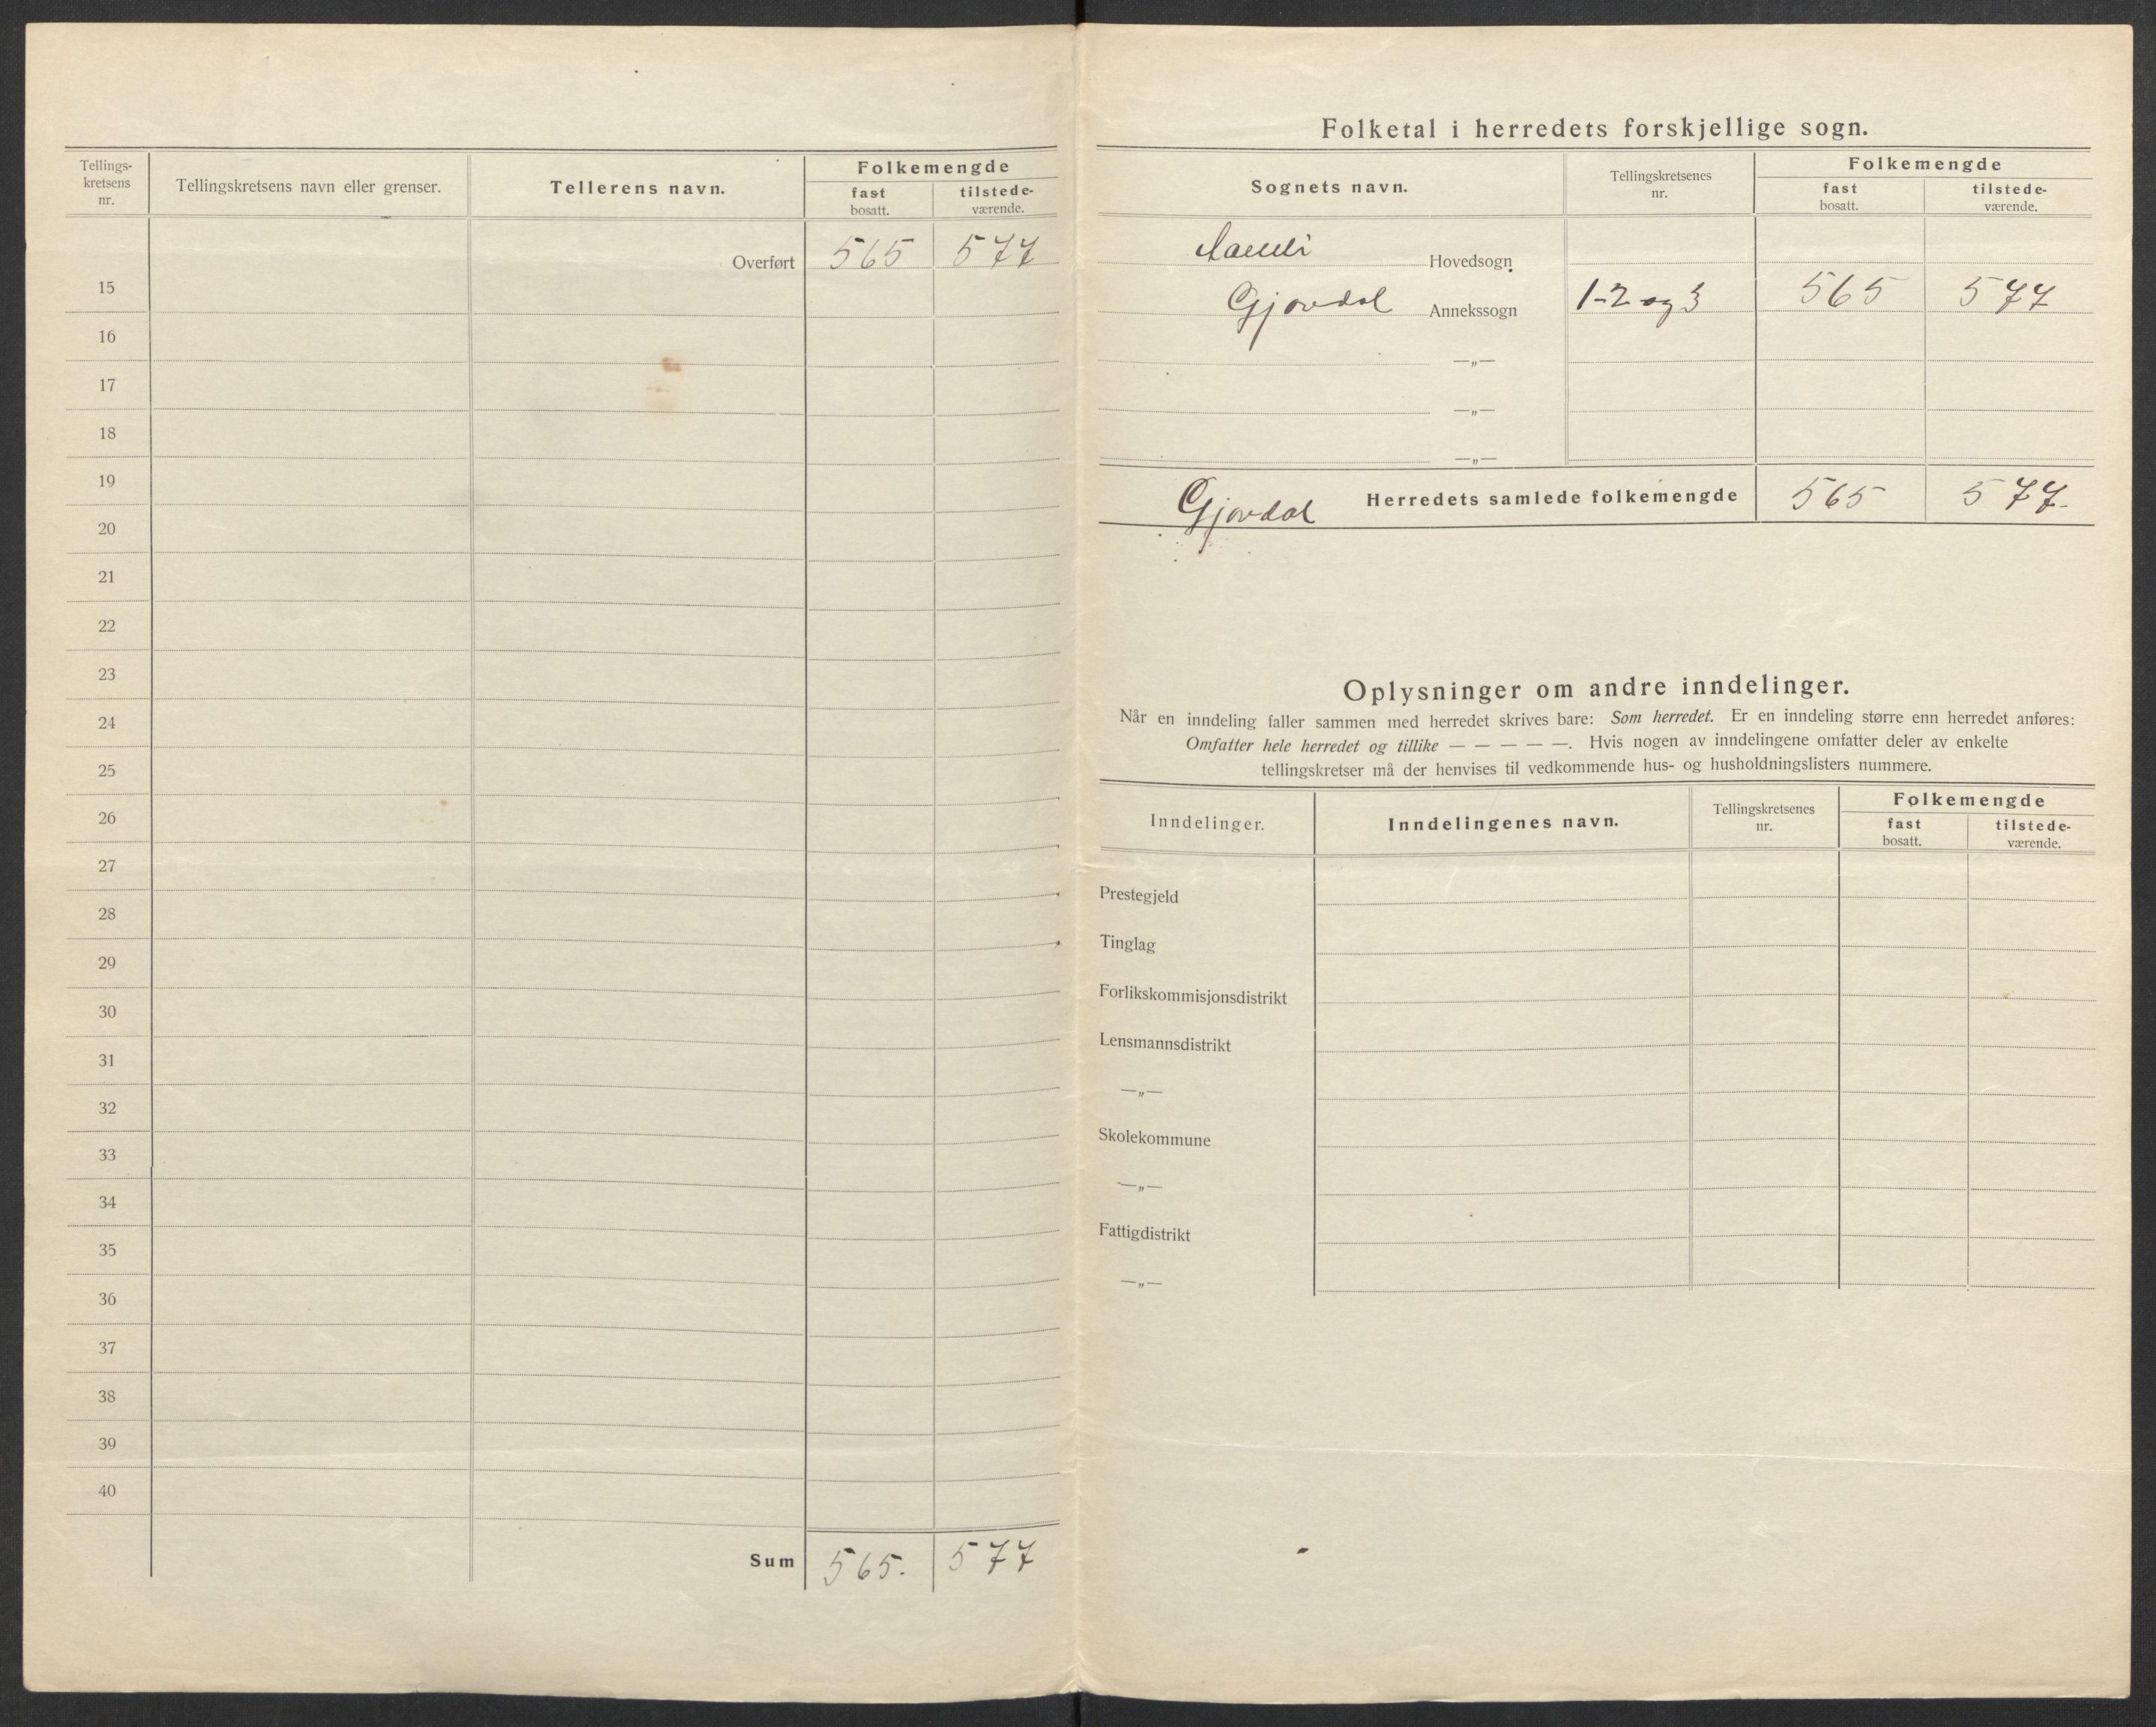 Tellings-
kretsens
nr.
Tellingskretsens navn eller grenser.
Tellerens navn.
Folkemengde
fast
bosatt.
tilstede-
værende.
Overført 565 577
15
16
17
18
19
20
21
22
23
24
25
26
27
28
29
30
31
32
33
34
35
36
37
38
39
40
Sum 565. 577
Folketal i herredets forskjellige sogn.
Sognets navn.
Tellingskretsenes
nr.
Folkemengde
fast
bosatt.
tilstede-
værende.
Hovedsogn
Gjøvdal Annekssogn 1-2 og 3 565 577
—„—
—„—
—„—
Gjøvdal Herredets samlede folkemengde 565 577-
Oplysninger om andre inndelinger.
Når en inndeling faller sammen med herredet skrives bare: Som herredet. Er en inndeling større enn herredet anføres:
Omfatter hele herredet og tillike — — — — —. Hvis nogen av inndelingene omfatter deler av enkelte
tellingskretser må der henvises til vedkommende hus- og husholdningslisters nummere.
Inndelinger.
Inndelingenes navn.
Tellingskretsenes
nr.
Folkemengde
fast
bosatt.
tilstede-
værende.
Prestegjeld
Tinglag
Forlikskommisjonsdistrikt
Lensmannsdistrikt
—„—
Skolekommune
—„—
Fattigdistrikt
—„—